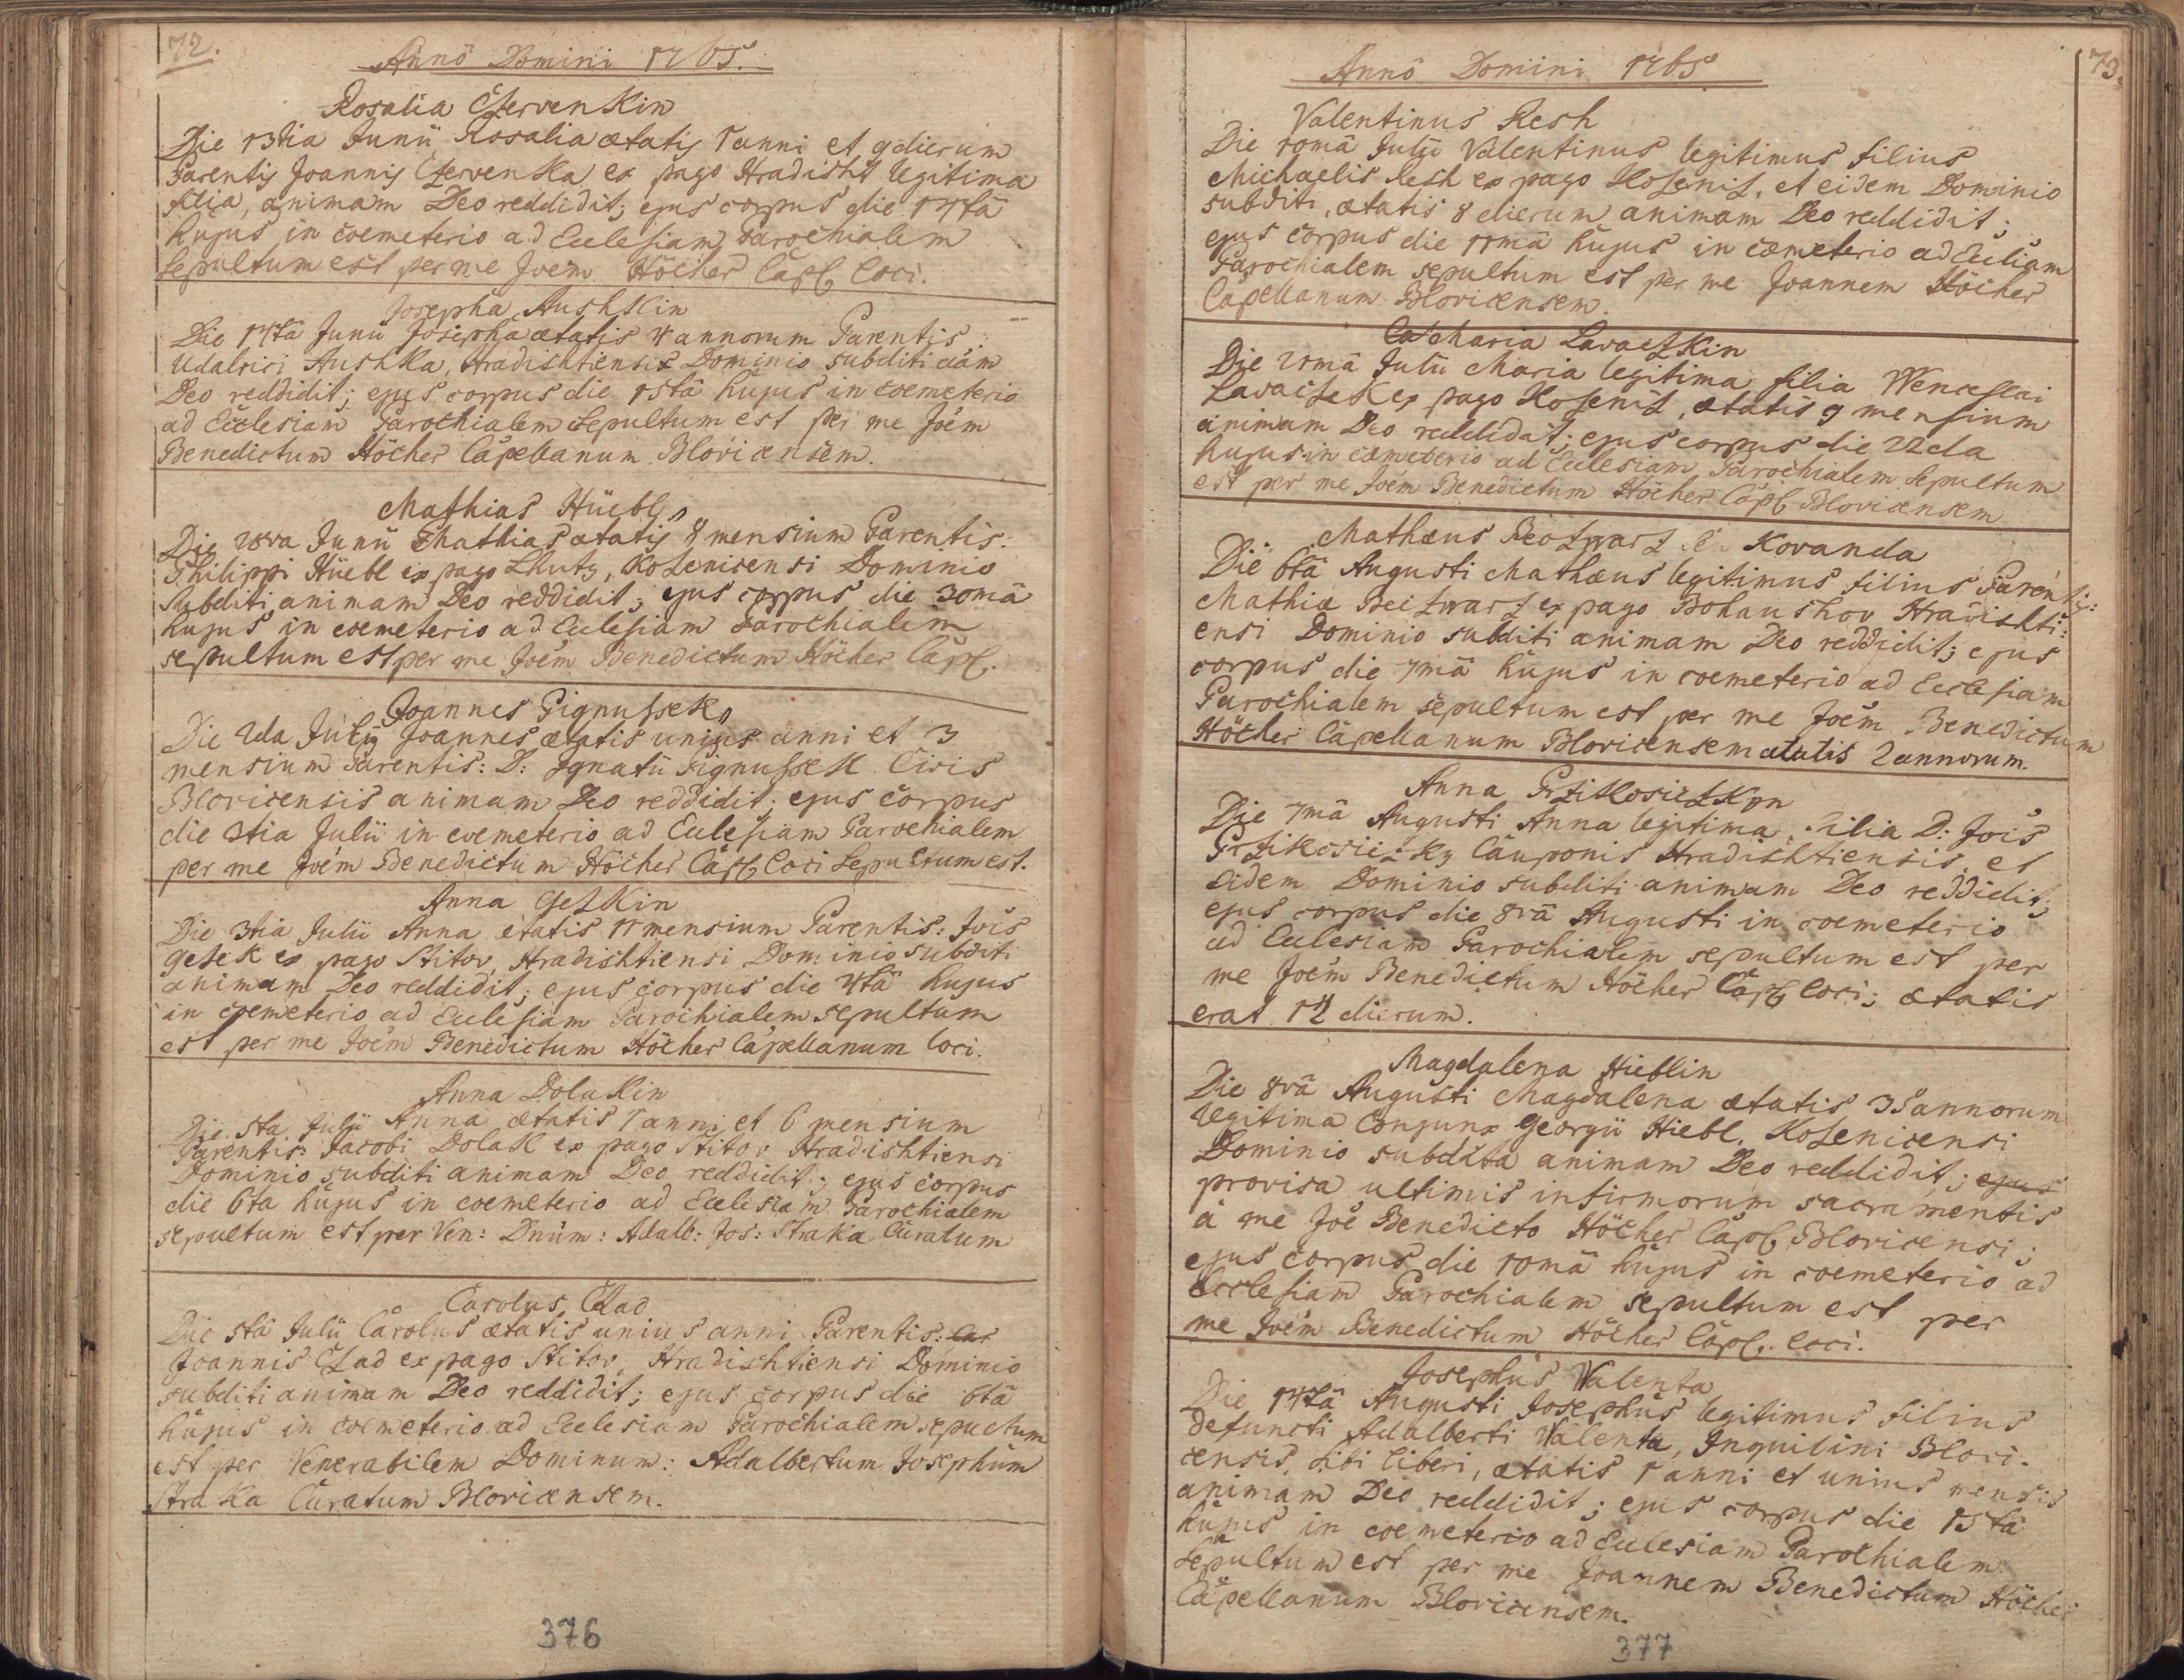 72.
Annô Domini 1765.
Rosalia Czervenkin
Die 13tia Junii Rosalia ætatis 1 anni et 9 dierum
Parentis Joannis Czervenka ex pago Hradisht legitima
filia, animam Deo reddidit; ejus corpus die 14tâ
hujus in coemeterio ad Ecclesiam Parochialem
sepultum est per me Joem Höcher Capl. loci.
Josepha Aushkin
Die 14tâ Junii Josepha ætatis 4 annorum Parentis
Udalrici Aushka, Hradishtiensis Dominio subditi aam
Deo reddidit; ejus corpus die 15tâ hujus in coemeterio
ad Ecclesiam Parochialem Sepultum est per me Joem
Benedictum Höcher Capellanum Blovicensem.
Mathias Hüebl
Die 28va Junii Mathias ætatis 8 mensium Parentis:
Philippi Hüebl ex pago Lhutz, Kozenicensi Dominio
Subditi animam Deo reddidit; ejus corpus die 30mâ
hujus in coemeterio ad Ecclesiam Parochialem
sepultum est per me Joem Benedictum Höcher Capl.
Joannes Pignussek
Die 2da Julii Joannes ætatis unius anni et 3
mensium Parentis: D: Ignatii Pignussek Civis
Blovicensis animam Deo reddidit; ejus corpus
die 3tia Julii in coemeterio ad Ecclesiam Parochialem
per me Joem Benedictum Höcher Capl. loci Sepultum est.
Anna Gezkin
Die 3tia Julii Anna ætatis 11 mensium Parentis: Jois
Gezek ex pago Stitov, Hradishtiensi Dominio subditi
animam Deo reddidit; ejus corpus die 4tâ hujus
in coemeterio ad Ecclesiam Parochialem sepultum
est per me Joem Benedictum Höcher Capellanum loci.
Anna Dolakin
Die 5ta Julii Anna ætatis 1 anni et 6 mensium
Parentis: Jacobi Dolak ex pago Stitov Hradishtiensi
Dominio subditi animam Deo reddidit; ejus corpus
die 6ta hujus in coemeterio ad Ecclesiam Parochialem
sepultum est per Ven: Dnum: Adalb: Jos: Straka Curatum
Carolus Czad
Die 5tâ Julii Carolus ætatis unius anni Parentis: Car
Joannis Czad ex pago Stitov, Hradishtiensi Dominio
subditi animam Deo reddidit; ejus corpus die 6tâ
hujus in coemeterio ad Ecclesiam Parochialem sepultum
est per Venerabilem Dominum: Adalbertum Josephum
Straka Curatum Blovicensem.
376
73.
Annô Domini 1765
Valentinus Resh
Die 10mâ Julii Valentinus legitimus filius
Michaelis Resh ex pago Kozeniz, et eidem Dominio
subditi, ætatis 8 dierum animam Deo reddidit;
ejus corpus die 11mâ hujus in coemeterio ad Eccliam
Parochialem sepultum est per me Joannem Höcher
Capellanum Blovicensem.
Maria Lavaczkin
Die 21mâ Julii Maria legitima filia Wenceslai
Lavaczek ex pago Kozeniz, ætatis 9 mensium
animam Deo reddidit; ejus corpus die 22da
hujus in coemeterio ad Ecclesiam Parochialem Sepultum
est per me Joem Benedictum Höcher Capl. Blovicensem
Mathæus Kovanda
Die 6tâ Augusti Mathæus legitimus filius Parentis:
Mathiæ ex pago Bohaushov Hradishti:
ensi Dominio subditi animam Deo reddidit; ejus
corpus die 7mâ hujus in coemeterio ad Ecclesiam
Parochialem sepultum est per me Joem Benedictum
Höcher Capellanum Blovicensem ætatis 2 annorum.
Anna Przikosiczkyn
Die 7mâ Augusti Anna legitima filia D: Jois
Przikosiczky Cauponis Hradishtiensis, et
eidem Dominio subditi animam Deo reddidit;
ejus corpus die 8vâ Augusti in coemeterio
ad Ecclesiam Parochialem sepultum est per
me Joem Benedictum Höcher Capl. loci; ætatis
erat 12 dierum.
Magdalena Hieblin
Die 8vâ Augusti Magdalena ætatis 35 annorum
legitima Conjunx Georgii Hiebl, Kozenicensi
Dominio subdita animam Deo reddidit; ejus
provisa ultimis infirmorum sacramentis
â me Joe Benedicto Höcher Capl. Blovicensi;
ejus corpus die 10mâ hujus in coemeterio ad
Ecclesiam Parochialem sepultum est per
me Joem Benedictum Höcher Capl. loci.
Josephus Valenta
Die 14tâ Augusti Josephus legitimus filius
defuncti Adalberti Valenta, Inquilini Blovi-
censis, sibi liberi, ætatis 1 anni et unius mensis
animam Deo reddidit; ejus corpus die 15tâ
hujus in coemeterio ad Ecclesiam Parochialem
Sepultum est per me Joannem Benedictum Höcher
Capellanum Blovicensem.
377